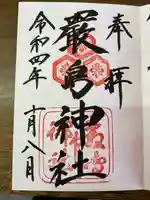 奉拝
嚴島神社
令和四年
十月八日